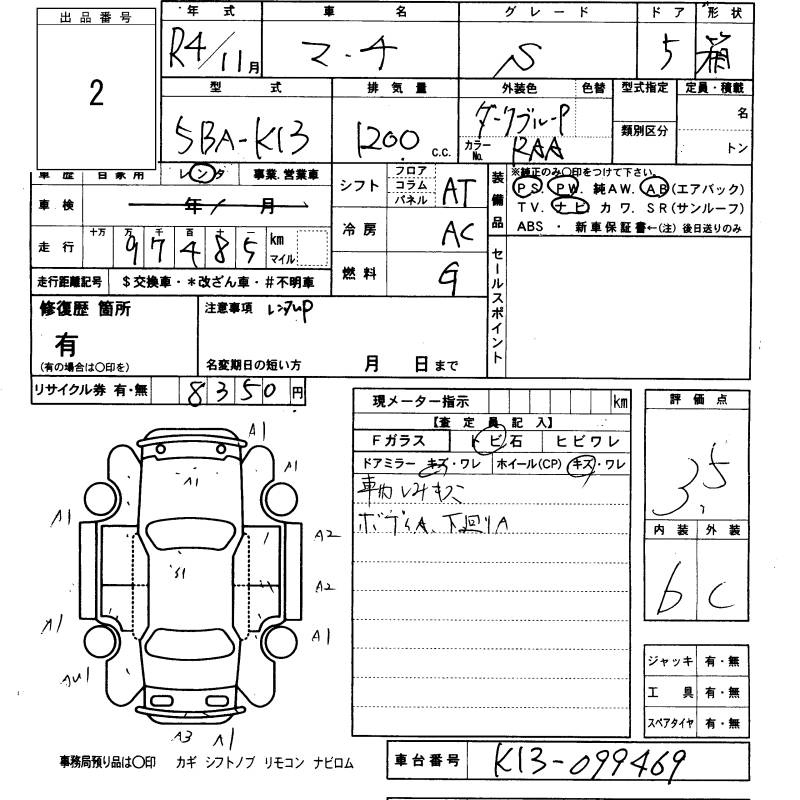 出品番号
2
年式 車名 グレード ドア 形状
R4/11月 マーチ S 5 箱
型式 排気量 外装色 色替 型式指定 定員・積載
5BA-K13 1200 c.c. ダークブルーP 名
カラーNo. RAA 類別区分 トン
車歴 自家用 レンタ 事業.営業車
車検 年 月
走行 十万 万 千 百 十 一
97485 km マイル
走行距離記号 $交換車・*改ざん車・#不明車
シフト フロア コラム パネル AT
冷房 AC
燃料 G
装備品
※純正のみ〇印をつけて下さい。
PS PW. 純AW. AB(エアバック)
TV. ナビ カワ. SR(サンルーフ)
ABS ・ 新車保証書←(注) 後日送りのみ
セールスポイント
修復歴 箇所
有
(有の場合は〇印を)
注意事項 レンタUP
名変期日の短い方 月 日まで
リサイクル券 有・無 8350円
現メーター指示 km
【査定員記入】
Fガラス トビ石 ヒビワレ
ドアミラー キズ・ワレ ホイール(CP) キズ・ワレ
車内シミ
ボディA、下回りA
評価点
3.5
内装 外装
b C
A1
A1
A1
A1
A2
S1
A2
A1
A1
AU1
A3 A1
ジャッキ 有・無
工具 有・無
スペアタイヤ 有・無
事務局預り品は〇印 カギ シフトノブ リモコン ナビロム
車台番号 K13-099469